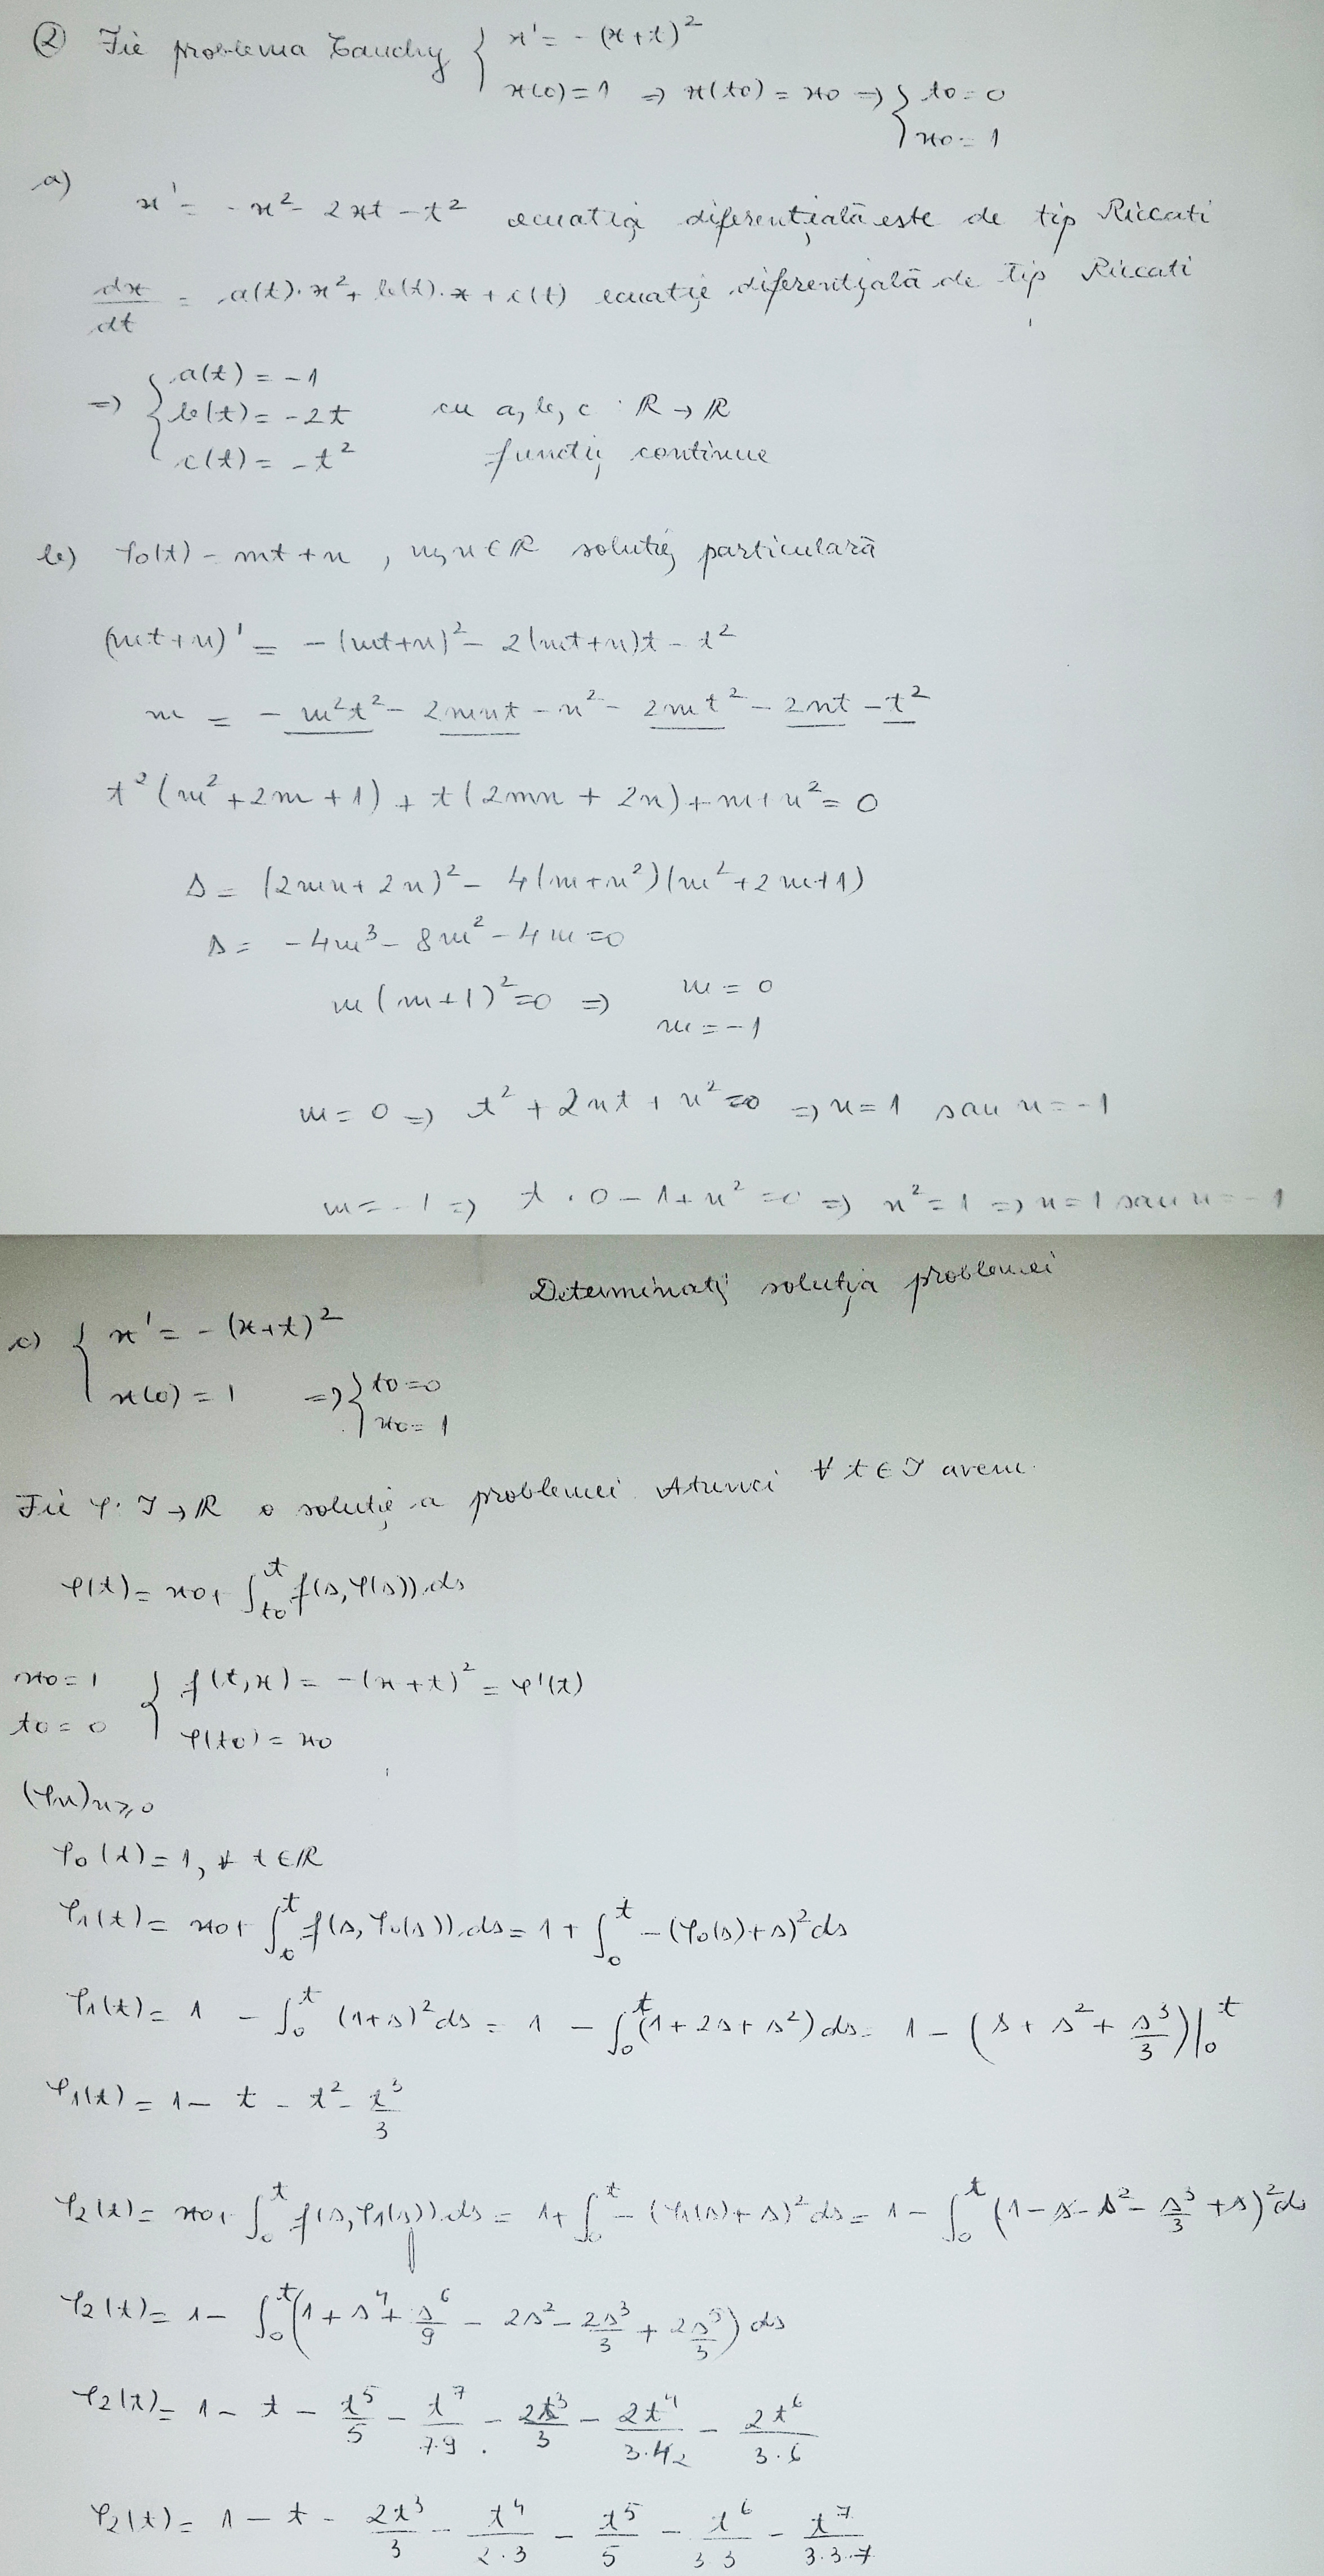 ② Fie problema Cauchy { x' = -(x+t)²
x(0) = 1 => x(t0) = x0 => { t0 = 0
x0 = 1
a)
x' = -x² - 2xt - t² ecuația diferențială este de tip Riccati
dx/dt = a(t)·x² + b(t)·x + c(t) ecuație diferențială de tip Riccati
=> { a(t) = -1
b(t) = -2t cu a, b, c : R → R
c(t) = -t² funcții continue
b) φ0(t) = mt + n , m, n ∈ R soluție particulară
(mt+n)' = -(mt+n)² - 2(mt+n)t - t²
m = - m²t² - 2mnt - n² - 2mt² - 2nt - t²
t²(m² + 2m + 1) + t(2mn + 2n) + m + n² = 0
Δ = (2mn + 2n)² - 4(m+n²)(m²+2m+1)
Δ = -4m³ - 8m² - 4m = 0
m(m+1)² = 0 => m = 0
m = -1
m = 0 => t² + 2nt + n² = 0 => n = 1 sau n = -1
m = -1 => t · 0 - 1 + n² = 0 => n² = 1 => n = 1 sau n = -1
Determinați soluția problemei
c) { x' = -(x+t)²
x(0) = 1 => { t0 = 0
x0 = 1
Fie φ: I → R o soluție a problemei. Atunci ∀ t ∈ I avem
φ(t) = x0 + ∫_{t0}^{t} f(s, φ(s)) ds
x0 = 1 { f(t, x) = -(x+t)² = φ'(t)
t0 = 0 φ(t0) = x0
(φn)n≥0
φ0(t) = 1, ∀ t ∈ R
φ1(t) = x0 + ∫_0^t f(s, φ0(s)) ds = 1 + ∫_0^t -(φ0(s)+s)² ds
φ1(t) = 1 - ∫_0^t (1+s)² ds = 1 - ∫_0^t (1+2s+s²) ds = 1 - (s + s² + s³/3)|_0^t
φ1(t) = 1 - t - t² - t³/3
φ2(t) = x0 + ∫_0^t f(s, φ1(s)) ds = 1 + ∫_0^t -(φ1(s)+s)² ds = 1 - ∫_0^t (1 - s - s² - s³/3 + s)² ds
φ2(t) = 1 - ∫_0^t (1 + s⁴ + s⁶/9 - 2s² - 2s³/3 + 2s⁵/3) ds
φ2(t) = 1 - t - t⁵/5 - t⁷/7·9 - 2t³/3 - 2t⁴/3·42 - 2t⁶/3·6
φ2(t) = 1 - t - 2t³/3 - t⁴/2·3 - t⁵/5 - t⁶/3 3 - t⁷/3·3·7